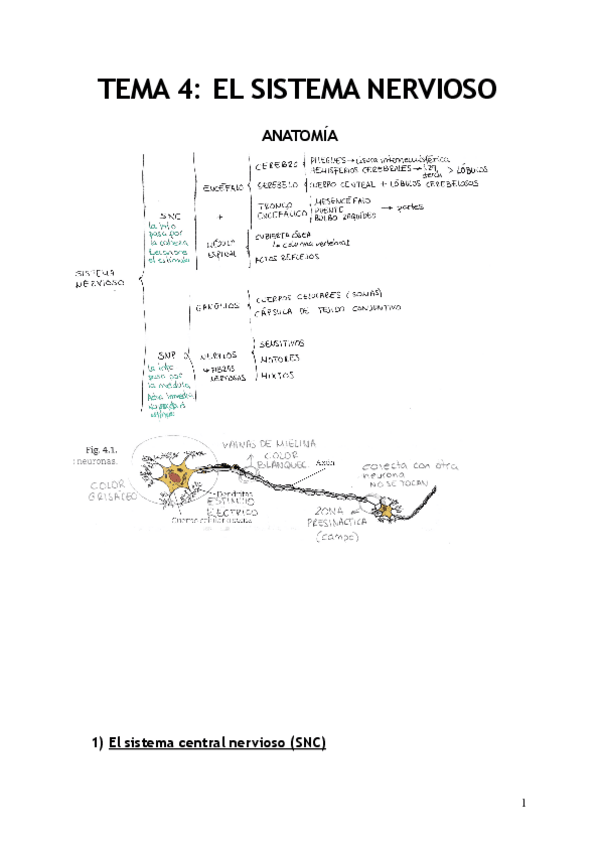 TEMA 4: EL SISTEMA NERVIOSO
ANATOMÍA
SISTEMA NERVIOSO
SNC
la info
pasa por
la cabeza
ENCÉFALO
+
MÉDULA
ESPINAL
CEREBRO
PLIEGUES → cisura interhemisférica
HEMISFERIOS CEREBRALES → izq
derch > LÓBULOS
CEREBELO
CUERPO CENTRAL + LÓBULOS CEREBELOSOS
TRONCO
ENCEFÁLICO
MESENCÉFALO
PUENTE
BULBO RAQUÍDEO
→ partes
CUBIERTA ÓSEA
↳ columna vertebral
ACTOS REFLEJOS
SNP
la info
pasa por
la médula
GANGLIOS
CUERPOS CELULARES (SOMAS)
CÁPSULA DE TEJIDO CONJUNTIVO
NERVIOS
↳ FIBRAS
NERVIOSAS
SENSITIVOS
MOTORES
MIXTOS
Fig. 4.1.
neuronas.
VAINAS DE MIELINA
COLOR
BLANQUEC
Axón
conecta con otra
neurona
NO SE TOCAN
COLOR
GRISÁCEO
Dendritas
ESTÍMULO
ELÉCTRICO
Cuerpo celular o soma
ZONA
PRESINÁCTICA
(campo)
1) El sistema central nervioso (SNC)
1